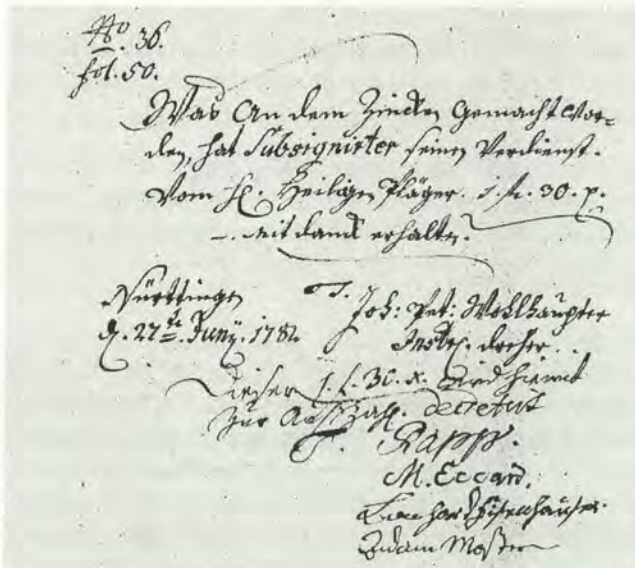 No. 36.
fol. 50.
Was an dem Zincken gemacht wor-
den, hat Subsignirter seinen Verdienst.
Vom H. Heiligen Pfläger. 1 f. 30. x.
mit danck erhalten.
Nürttingen
d. 27te. Juny. 1782
T. Joh: Pet: Wohlhaupter
Instr. dreher.
Dieser 1. f. 30. x. wird hiemit
zur Außzahl. decretirt
T. Rapp.
M. Eccard.
Leonhard Eisenhäuser
Adam Moßer